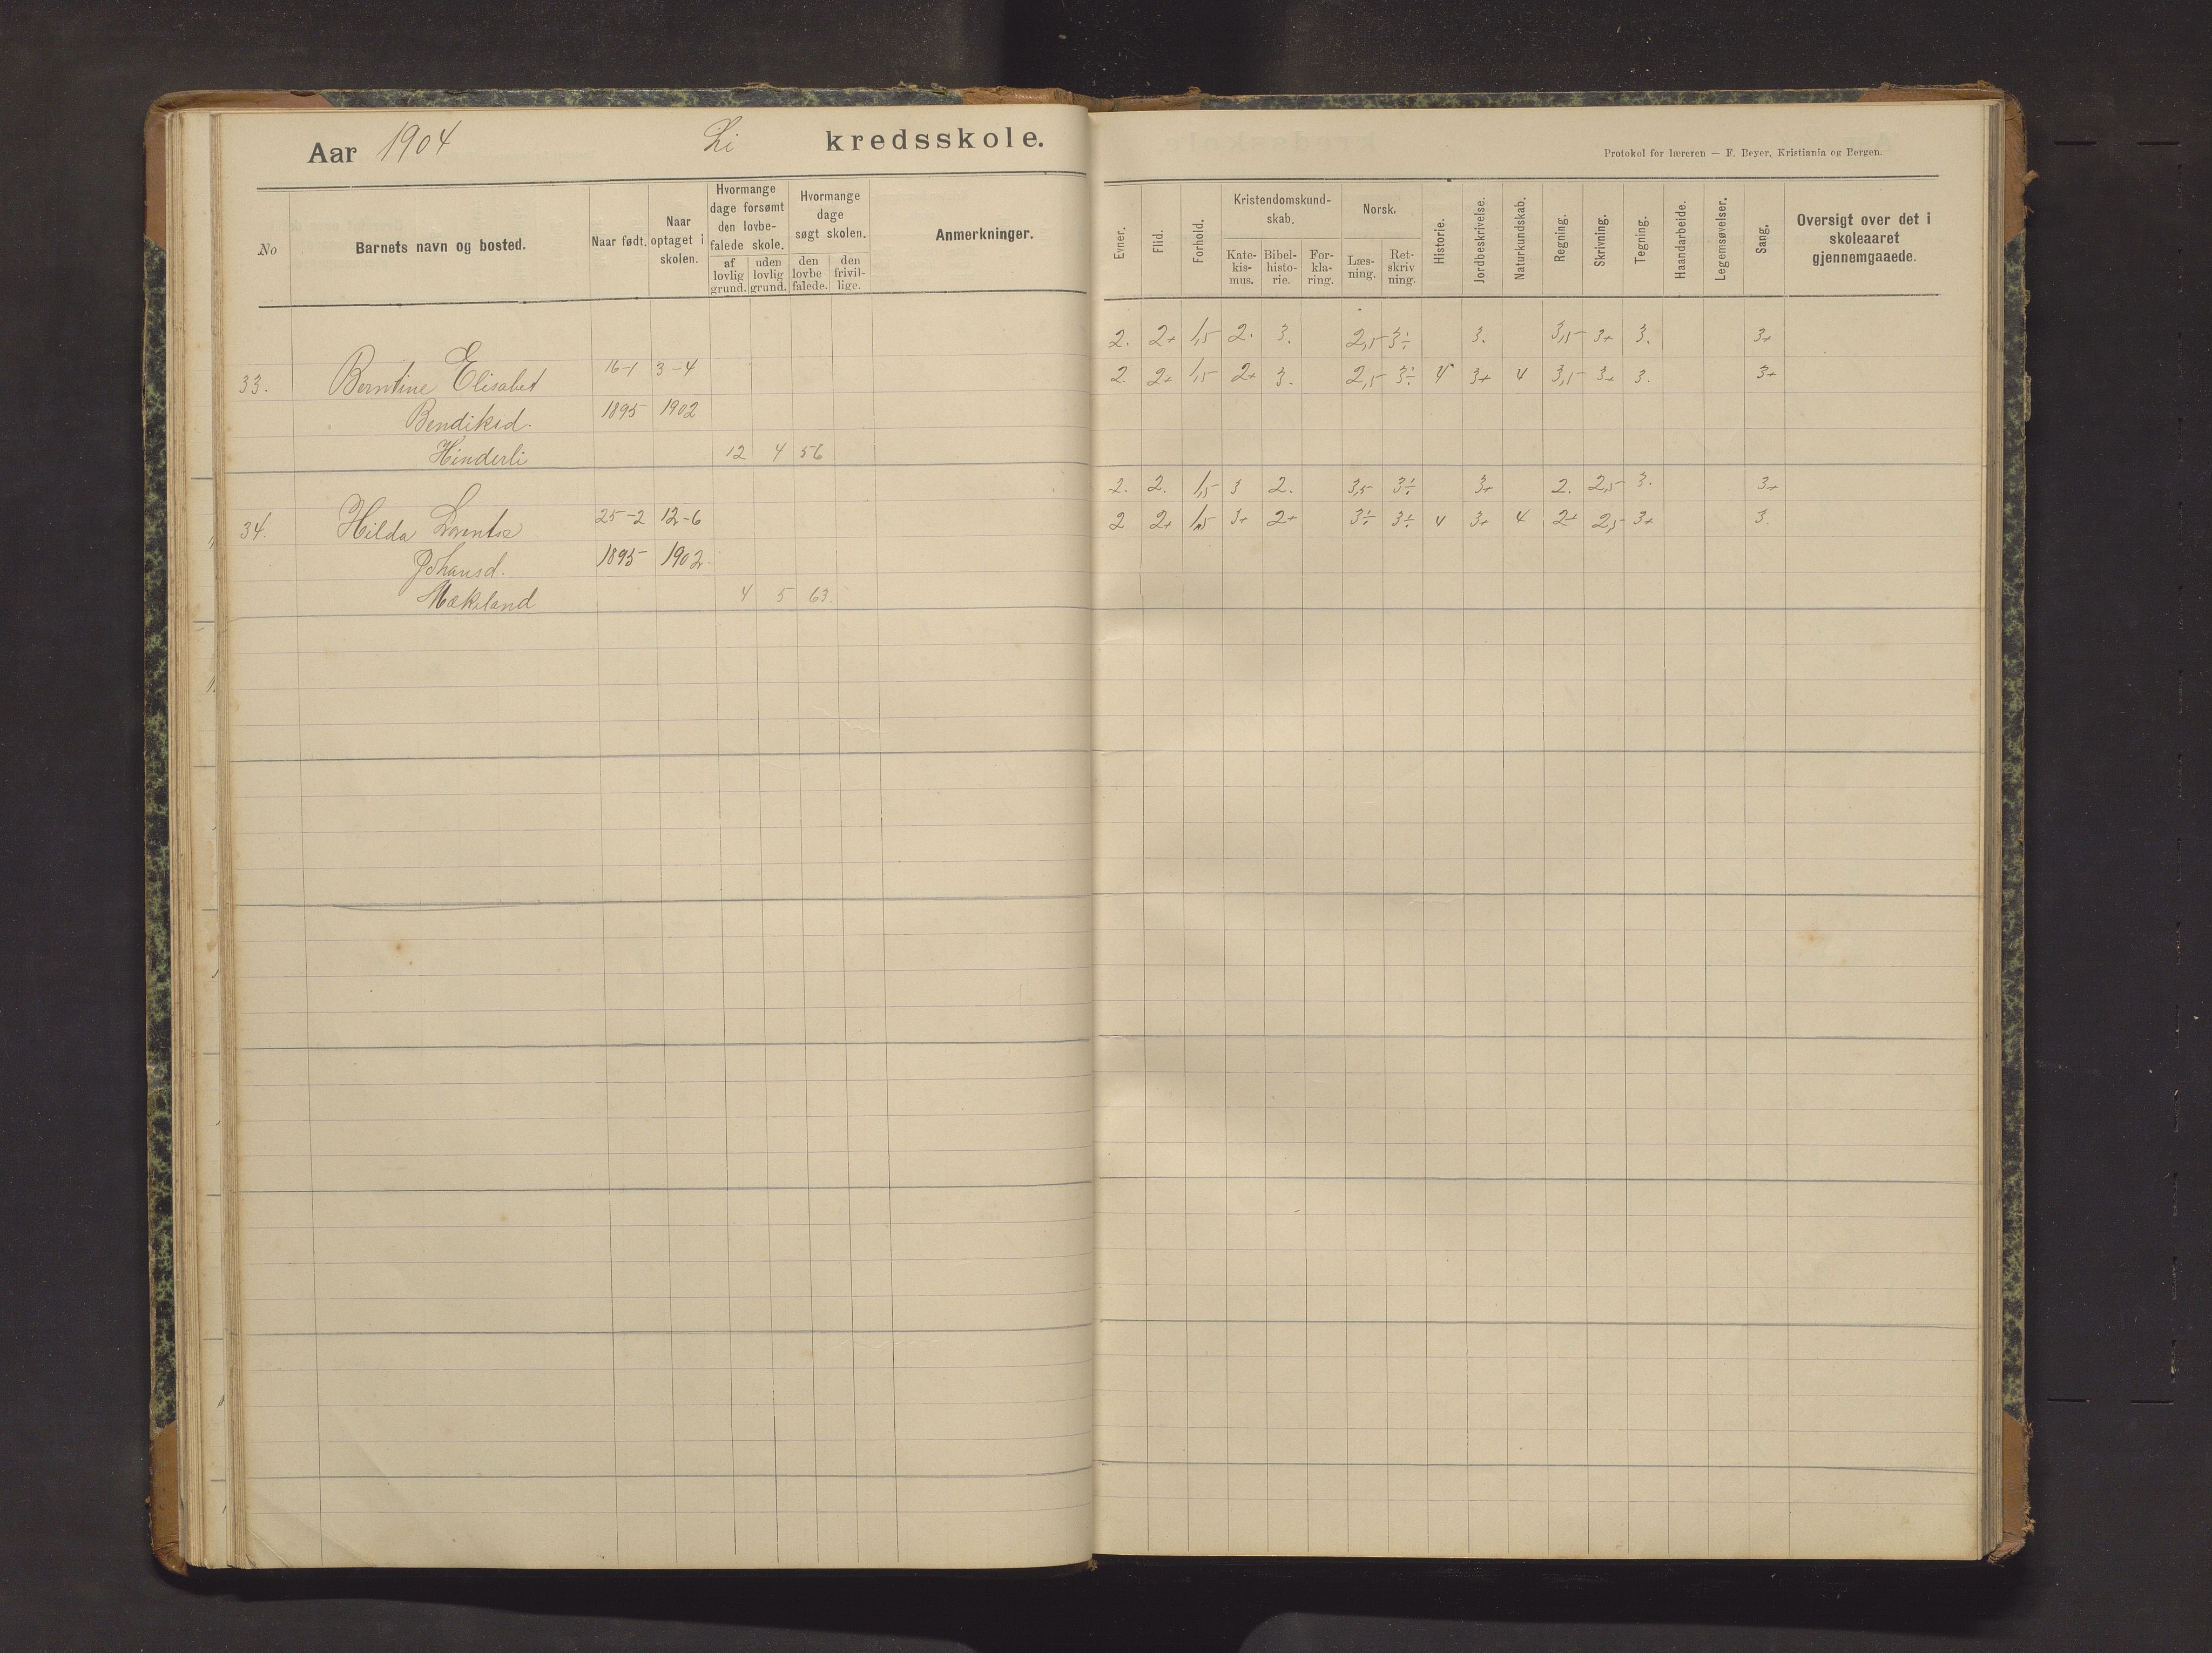 Aar 1904 Li kredsskole.
Protokol for læreren — F. Beyer, Kristiania og Bergen.
No
Barnets navn og bosted.
Naar født.
Naar optaget i skolen.
Hvormange dage forsømt den lovbefalede skole.
af lovlig grund.
uden lovlig grund.
Hvormange dage søgt skolen.
den lovbefalede.
den frivillige.
Anmerkninger.
Evner.
Flid.
Forhold.
Kristendomskundskab.
Katekismus.
Bibelhistorie.
Forklaring.
Norsk.
Læsning.
Retskrivning.
Historie.
Jordbeskrivelse.
Naturkundskab.
Regning.
Skrivning.
Tegning.
Haandarbeide.
Legemsøvelser.
Sang.
Oversigt over det i skoleaaret gjennemgaaede.
2. 2+ 1,5 2. 3. 2,5 3÷ 3. 3,5 3+ 3. 3+
33. Berntine Elisabet 16-1 3-4 2. 2+ 1,5 2+ 3. 2,5 3÷ 4 3+ 4 3,5 3+ 3. 3+
Bendiksd. 1895 1902
Hinderli 12 4 56
2. 2. 1,5 3 2. 3,5 3÷ 3+ 2. 2,5 3. 3+
34. Hilda Lorentse 25-2 12-6 2 2+ 1,5 3+ 2+ 3÷ 3÷ 4 3+ 4 2+ 2,5 3+ 3.
Johansd. 1895 1902.
Mækeland 4 5 63.